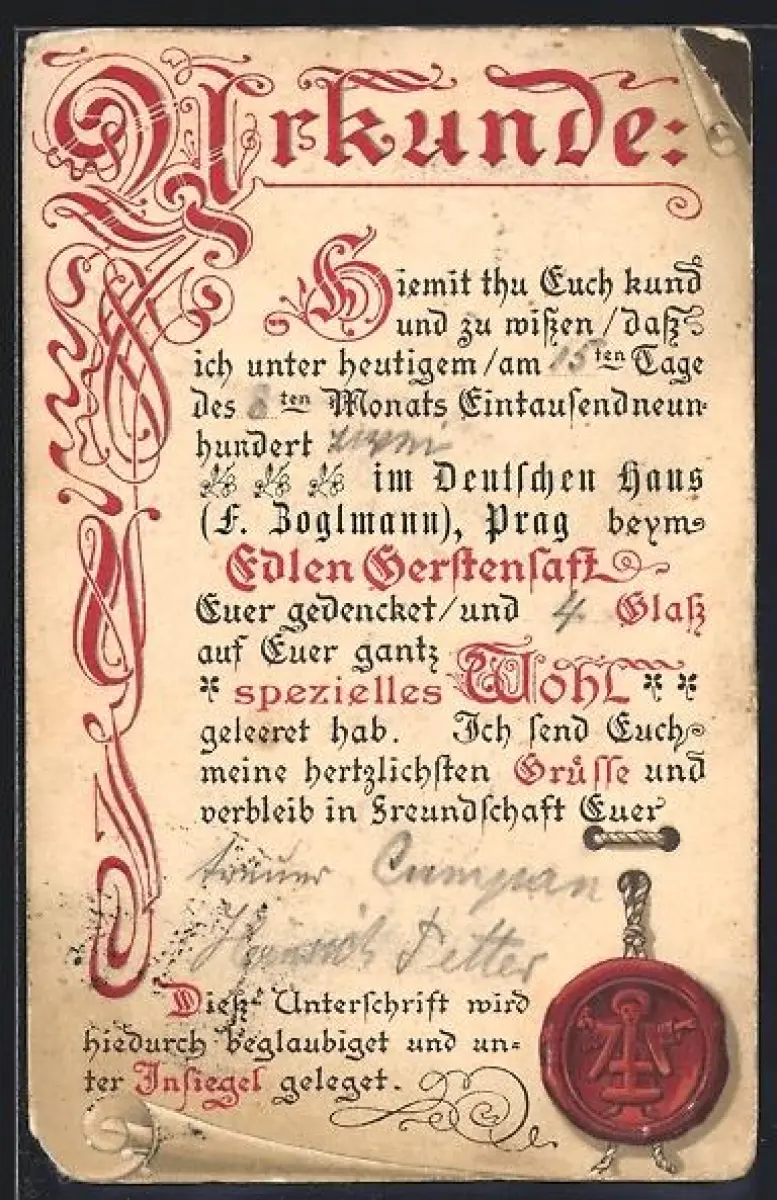 Urkunde:
Hiemit thu Euch kund
und zu wißen / daß
ich unter heutigem / am 15ten Tage
des 8ten Monats Eintausendneun-
hundert
im Deutschen Haus
(F. Zoglmann), Prag beym
Edlen Gerstensaft
Euer gedencket / und 4 Glaß
auf Euer gantz
spezielles Wohl
geleeret hab. Ich send Euch
meine hertzlichsten Grüsse und
verbleib in Freundschaft Euer
treuer Cumpan
Heinrich Petter
Dieße Unterschrift wird
hiedurch beglaubiget und un-
ter Insiegel geleget.